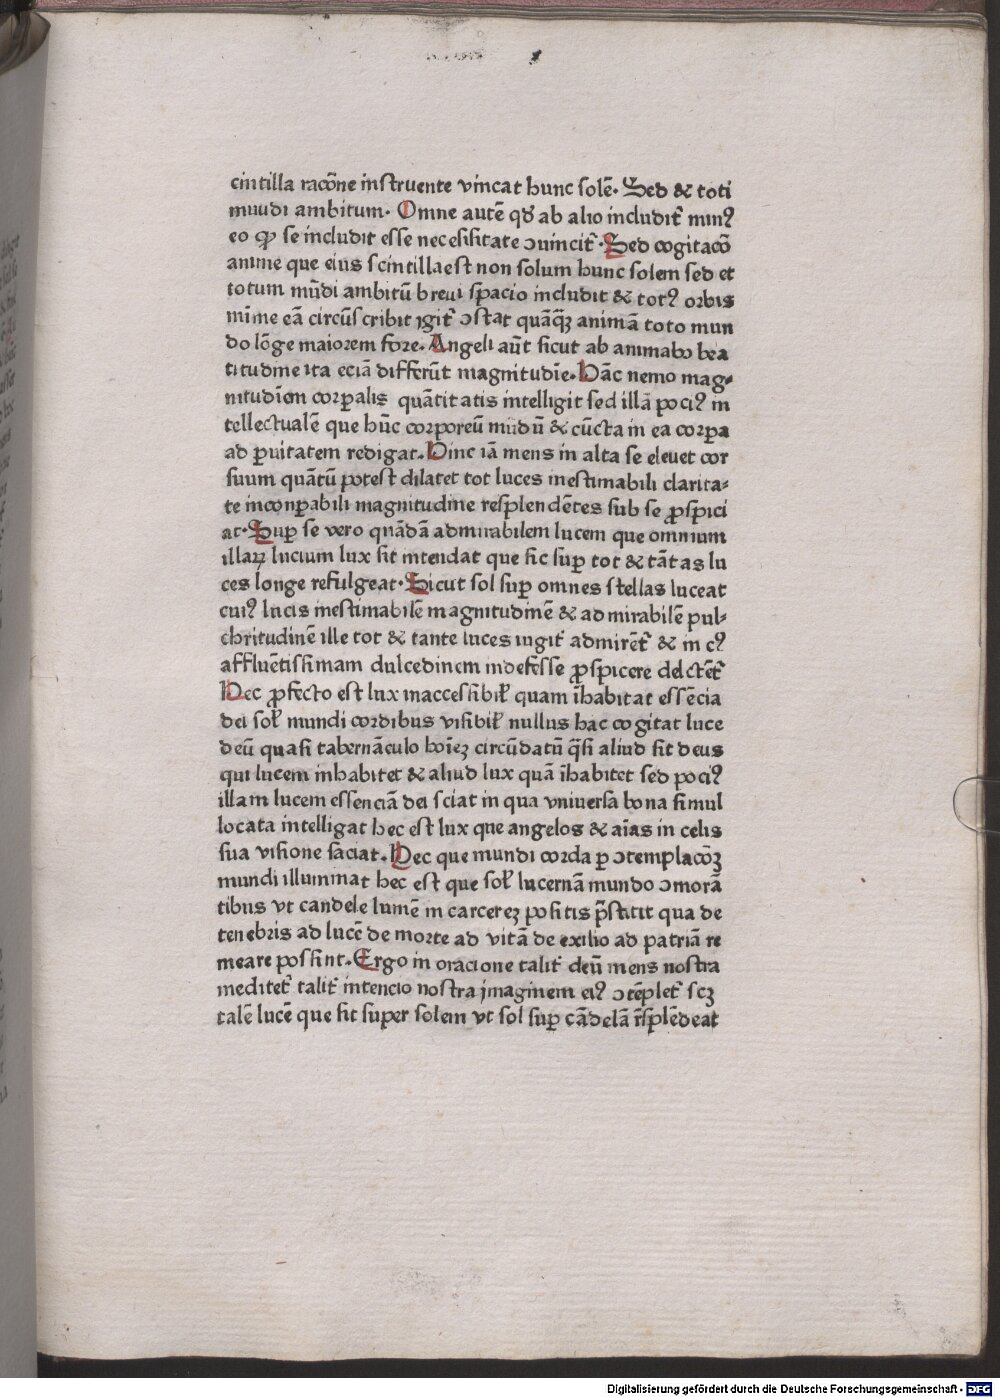 cintilla racõne instruente vincat hunc solẽ. Sed & toti
muudi ambitum. Omne autẽ qđ ab alio includit᷑ minꝰ
eo ꝙ se includit esse necessitate ɔuincit᷑. Sed cogitacõ
anime que eius scintilla est non solum hunc solem sed et
totum mũdi ambitũ breui spacio includit & totꝰ orbis
mĩme eã circũscribit igit᷑ ɔstat quãqꝫ animã toto mun
do lõge maiorem fore. Angeli aũt sicut ab animabꝰ bea
titudine ita eciã differũt magnitudĩe. Hãc nemo mag⸗
nitudĩem corꝑalis quãtitatis intelligit sed illã pociꝰ in
tellectualẽ que hũc corporeũ mũdũ & cũcta in ea corꝑa
ad ꝑuitatem redigat. Hinc iã mens in alta se eleuet cor
suum quãtũ potest dilatet tot luces inestimabili clarita⸗
te inconꝑabili magnitudine resplendẽtes sub se ꝓspici
at. Suꝑ se vero quãdã admirabilem lucem que omnium
illaꝝ lucium lux sit intendat que sic suꝑ tot & tãtas lu
ces longe refulgeat. Sicut sol suꝑ omnes stellas luceat
cuiꝰ lucis inestimabilẽ magnitudinẽ & admirabilẽ pul⸗
chritudinẽ ille tot & tante luces iugit᷑ admirẽt᷑ & in eꝰ
affluẽtissimam dulcedinem indefesse ꝓspicere delctẽt᷑
Hec ꝓfecto est lux inaccessibil᷑ quam ĩhabitat essẽcia
dei sol᷑ mundi cordibus visibil᷑ nullus hac cogitat luce
deũ quasi tabernãculo hoĩeꝫ circũdatũ q̃si aliud sit deus
qui lucem inhabitet & aliud lux quã ĩhabitet sed pociꝰ
illam lucem essenciã dei sciat in qua vniuersa bona simul
locata intelligat hec est lux que angelos & aĩas in celis
sua visione saciat. Hec que mundi corda ꝑ ɔtemplacõꝫ
mundi illuminat hec est que sol᷑ lucernã mundo ɔmorã
tibus vt candele lumẽ in carcereꝫ positis p̃stitit qua de
tenebris ad lucẽ de morte ad vitã de exilio ad patriã re
meare possint. Ergo in oracione talit᷑ deũ mens nostra
meditet᷑ talit᷑ intencio nostra jmaginem eiꝰ ɔtẽplet᷑ scꝫ
talẽ lucẽ que sit super solem vt sol suꝑ cãdelã r̃splẽdeat
Digitalisierung gefördert durch die Deutsche Forschungsgemeinschaft - DFG